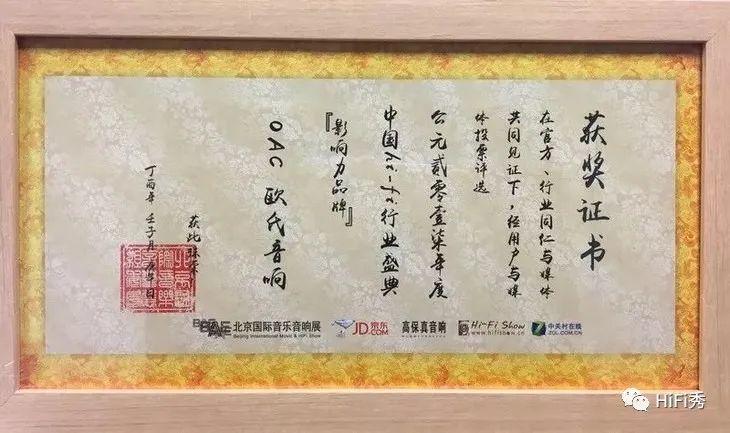 获奖证书
在官方、行业同仁与媒体
共同见证下，经用户与媒
体投票评选
公元贰零壹柒年度
中国hi-fi行业盛典
『影响力品牌』
OAC 欧氏音响
获此殊荣
丁酉年 壬子月
北京国际音乐音响展
Beijing International Music & HiFi Show
JD 京东
.COM
高保真音响
Hi-Fi Show
www.hifishow.cn
中关村在线
ZOL.COM.CN
HiFi秀